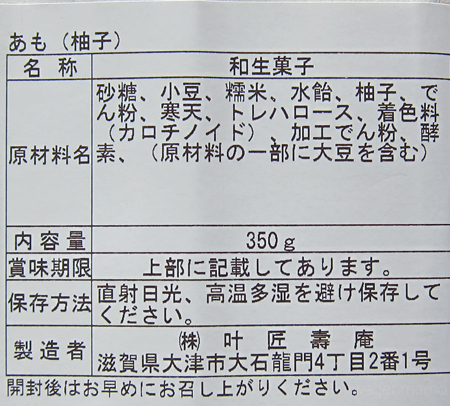 あも（柚子）
名称 和生菓子
原材料名 砂糖、小豆、糯米、水飴、柚子、で
ん粉、寒天、トレハロース、着色料
（カロチノイド）、加工でん粉、酵
素、（原材料の一部に大豆を含む）
内容量 350ｇ
賞味期限 上部に記載してあります。
保存方法 直射日光、高温多湿を避け保存して
ください。
製造者 ㈱ 叶匠壽庵
滋賀県大津市大石龍門4丁目2番1号
開封後はお早めにお召し上がりください。